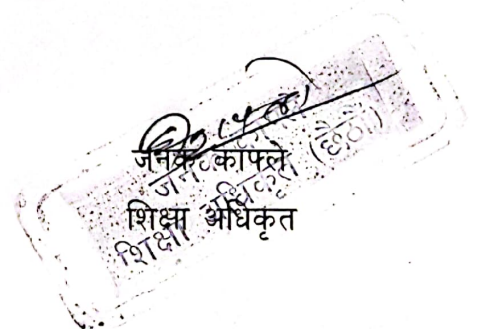 जनक काफ्ले
शिक्षा अधिकृत
जनक काफ्ले
शिक्षा अधिकृत (छैठौं)